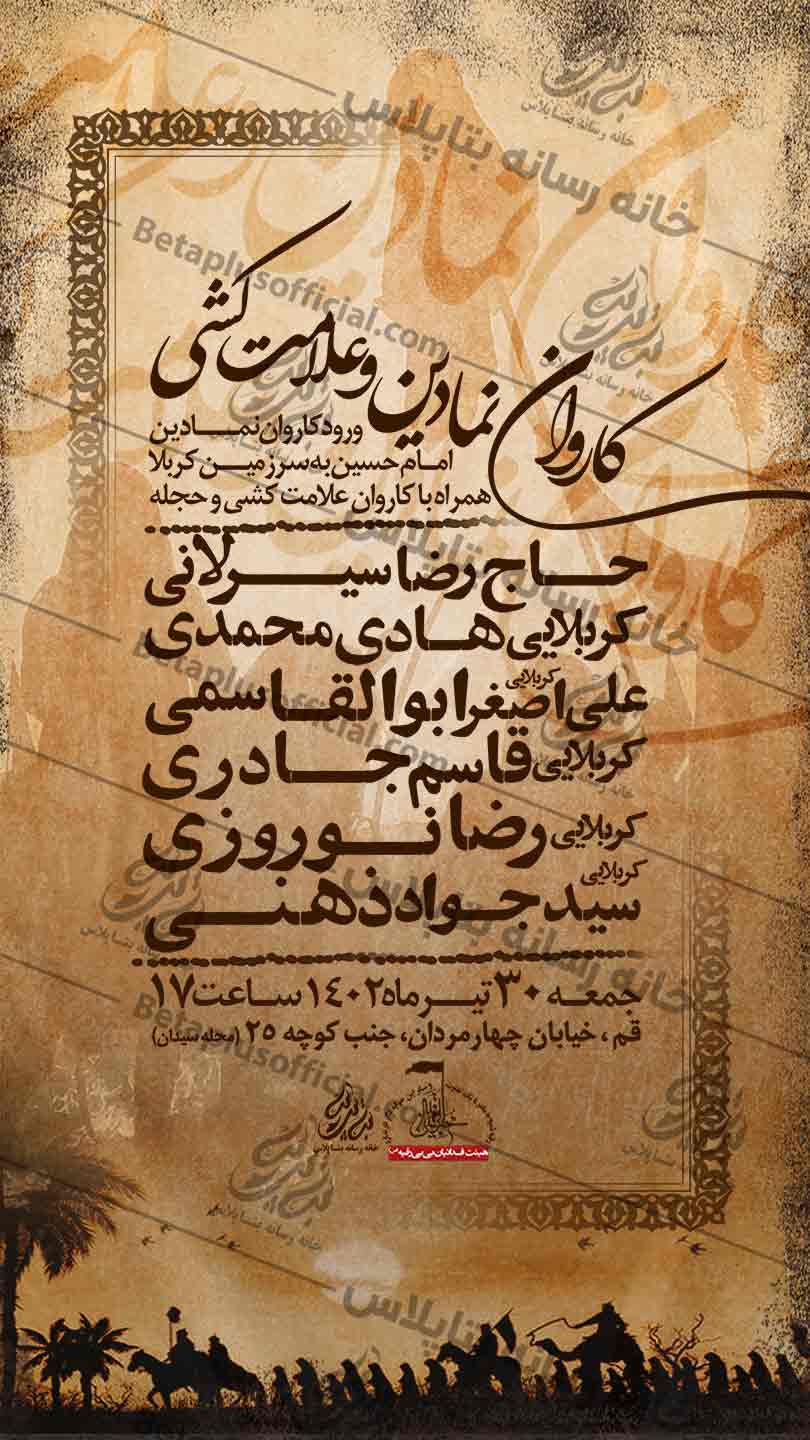 کاروان نمادین و علامت کشی
ورود کاروان نمادین
امام حسین به سرزمین کربلا
همراه با کاروان علامت کشی و حجله
حاج رضا سیرلانی
کربلایی هادی محمدی
کربلایی علی اصغر ابوالقاسمی
کربلایی قاسم جادری
کربلایی رضا نوروزی
کربلایی سید جواد ذهنی
جمعه ۳۰ تیر ماه ۱۴۰۲ ساعت ۱۷
قم ، خیابان چهارمردان، جنب کوچه ۲۵ (محله سیدان)
هیئت فدائیان بی بی رقیه
خانه رسانه بتاپلاس
Betaplusofficial.com